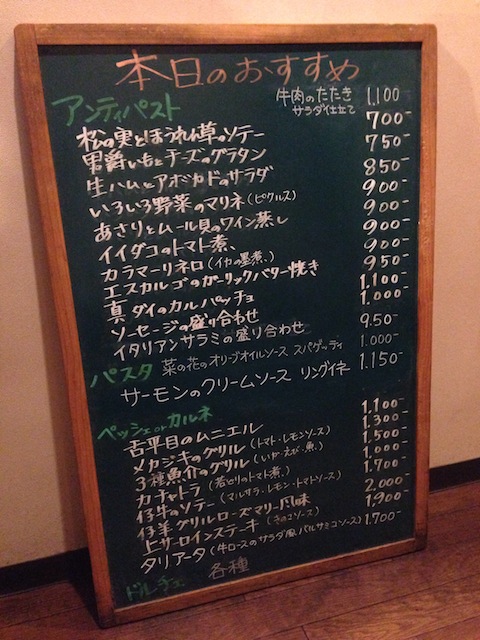 本日のおすすめ
牛肉のたたき サラダ仕立て 1,100
アンティパスト
松の実とほうれん草のソテー 700-
男爵いもとチーズのグラタン 750-
生ハムとアボカドのサラダ 850-
いろいろ野菜のマリネ(ピクルス) 900-
あさりとムール貝のワイン蒸し 900-
イイダコのトマト煮、 900-
カラマーリネロ(イカの墨煮、) 900-
エスカルゴのガーリックバター焼き 950-
真ダイのカルパッチョ 1,100-
ソーセージの盛り合わせ 1,000-
イタリアンサラミの盛り合わせ 950-
パスタ 菜の花のオリーブオイルソース スパゲッティ 1,000-
サーモンのクリームソース リングイネ 1,150-
ペッシェorカルネ
舌平目のムニエル 1,100-
メカジキのグリル(トマト・レモンソース) 1,300-
3種魚介のグリル(いか・えび・魚、) 1,500-
カチャトラ(若どりのトマト煮、) 1,000-
仔牛のソテー(マルサラ・レモン・トマトソース) 1,700-
仔羊グリルローズマリー風味 2,000-
上サーロインステーキ(きのこソース) 1,900-
タリアータ(牛ロースのサラダ風バルサミコソース) 1,700-
ドルチェ 各種